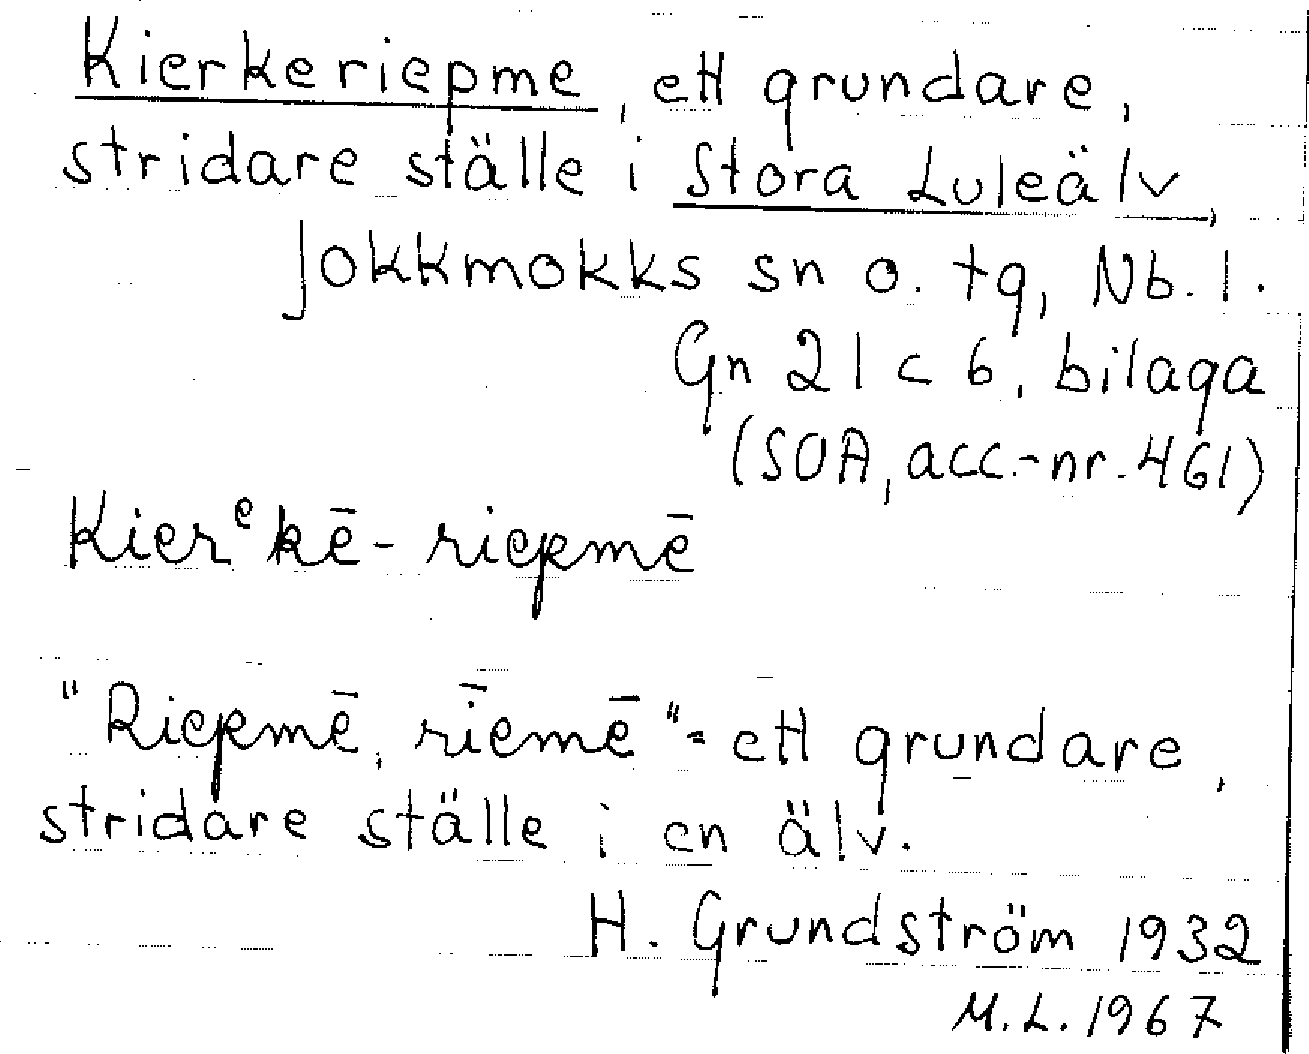 Kierkeriepme, ett grundare,
stridare ställe i Stora Luleälv,
Jokkmokks sn o. tg, Nb. l.
Gn 21 c 6, bilaga
(SOA, acc.-nr. 461)
Kierᵉkē-riepmē
"Riepmē, riēmē" = ett grundare,
stridare ställe i en älv.
H. Grundström 1932
M.L. 1967